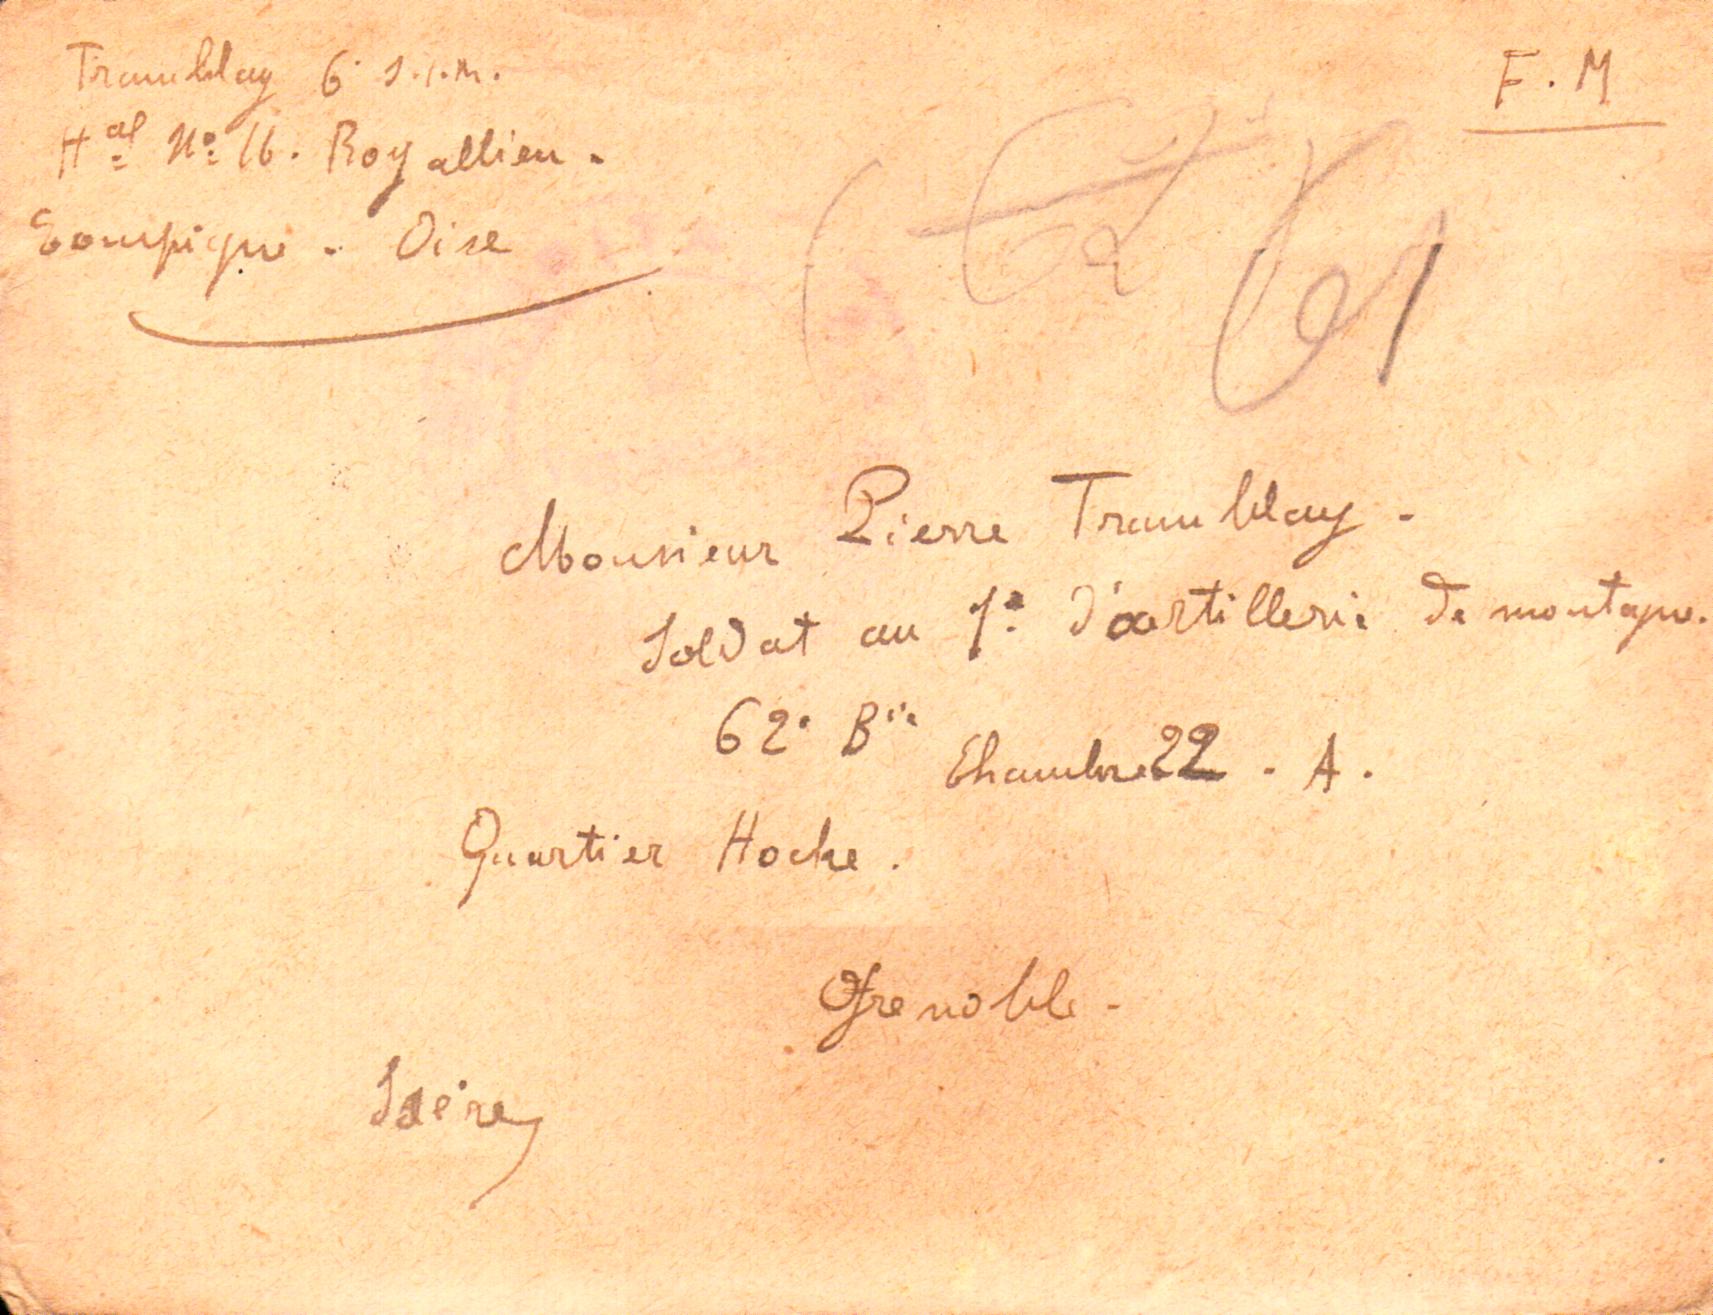 Tramblay 6e S.I.M.
Hal No 16. Royallieu.
Compiègne - Oise
F.M
61
Monsieur Pierre Tramblay -
Soldat au 1er d'artillerie de montagne.
62e Bie
Chambre 22 - A.
Quartier Hoche.
Grenoble -
Isère